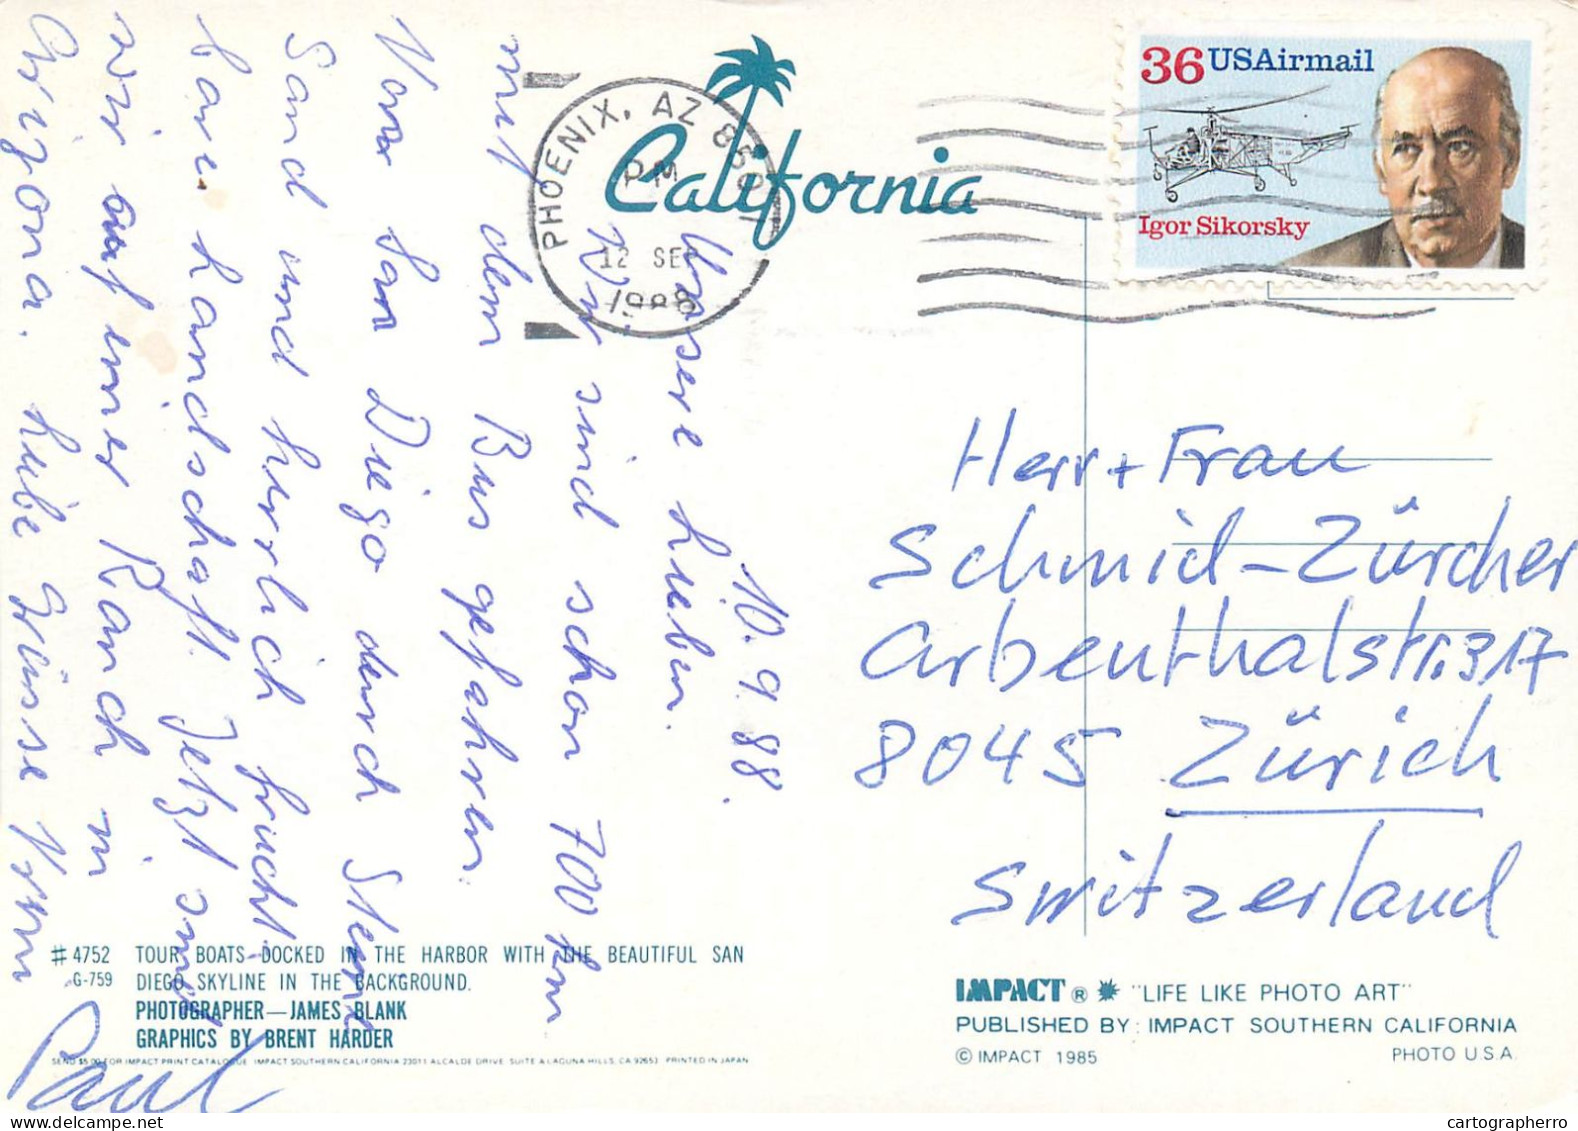 California
PHOENIX, AZ 850
PM
12 SEP
1988
36 USAirmail
Igor Sikorsky
10.9.88.
Unsere Lieben.
Wir sind schon 700 km
mit dem Bus gefahren.
Von San Diego durch Steine
Sand und herrlich frucht-
bare Landschaft. Jetzt sind
wir auf einer Ranch in
Arizona. Liebe Grüsse Vroni
Paul
Herr + Frau
Schmid-Zürcher
Arbenthalstr. 317
8045 Zürich
Switzerland
# 4752 TOUR BOATS DOCKED IN THE HARBOR WITH THE BEAUTIFUL SAN
G-759 DIEGO SKYLINE IN THE BACKGROUND.
PHOTOGRAPHER—JAMES BLANK
GRAPHICS BY BRENT HARDER
SEND $5.00 FOR IMPACT PRINT CATALOGUE IMPACT SOUTHERN CALIFORNIA 23011 ALCALDE DRIVE SUITE A LAGUNA HILLS, CA 92653 PRINTED IN JAPAN
IMPACT ® "LIFE LIKE PHOTO ART"
PUBLISHED BY: IMPACT SOUTHERN CALIFORNIA
© IMPACT 1985 PHOTO U.S.A.
cartographerro